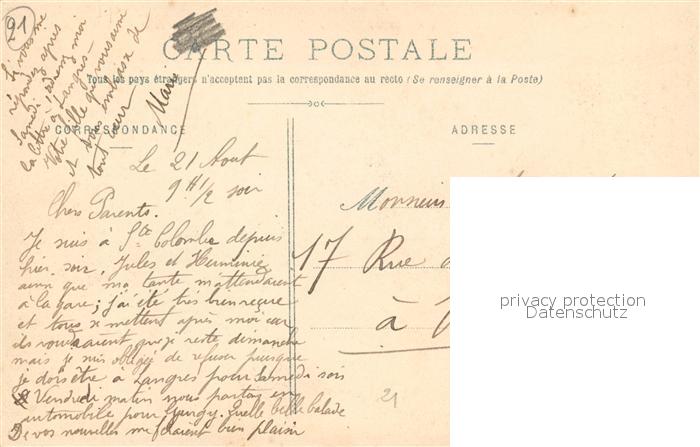 21
Si vous me
répondez après
Samedi
la lettre à Langres
Votre fille qui vous aime
et vous embrasse de
tout cœur
Marie
CARTE POSTALE
Tous les pays étrangers n'acceptent pas la correspondance au recto (Se renseigner à la Poste)
CORRESPONDANCE
ADRESSE
Le 21 Aout
9 H 1/2 soir
Chers Parents.
Je suis à Ste Colombe depuis
hier soir. Jules et Herminie
ainsi que ma tante m'attendaient
à la gare; j'ai été très bien reçue
et tous se mettent après moi car
ils voudraient que je reste dimanche
mais je suis obligée de refuser puisque
je dois être à Langres pour Samedi soir
Vendredi matin nous partons en
automobile pour Quelle belle balade
De vos nouvelles me feraient bien plaisir
Monsieur
17 Rue
à
21
privacy protection
Datenschutz